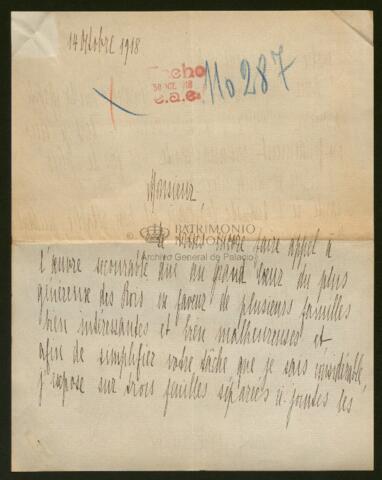 14 Octobre 1918
Hecho
30 DIC. 918
e.a.e.
110287
Monsieur,
PATRIMONIO
NACIONAL
Archivo General de Palacio
vous encore faire appel à
l'œuvre secourable au grand cœur du plus
généreux des Rois en faveur de plusieurs familles
bien intéressantes et bien malheureuses et
afin de simplifier votre tâche que je sais considérable,
j'expose sur trois feuilles séparées ci-jointes les